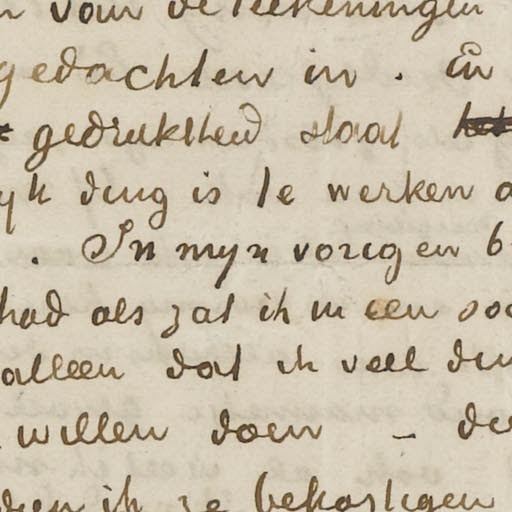 voor de teekeningen
gedachten in. En
gedruktheid staat
yk ding is te werken
. In myn vorigen b
had als zat ik in een soo
alleen dat ik veel din
willen doen – de
ik ze bekostigen